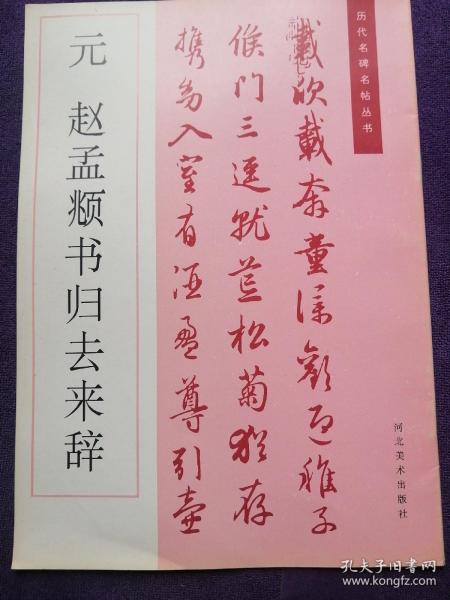 历代名碑名帖丛书
元 赵孟頫书归去来辞
載欣載奔童僕歡迎稚子
候门三逕就荒松菊猶存
携幼入室有酒盈尊引壺
河北美术出版社
孔夫子旧书网
www.kongfz.com